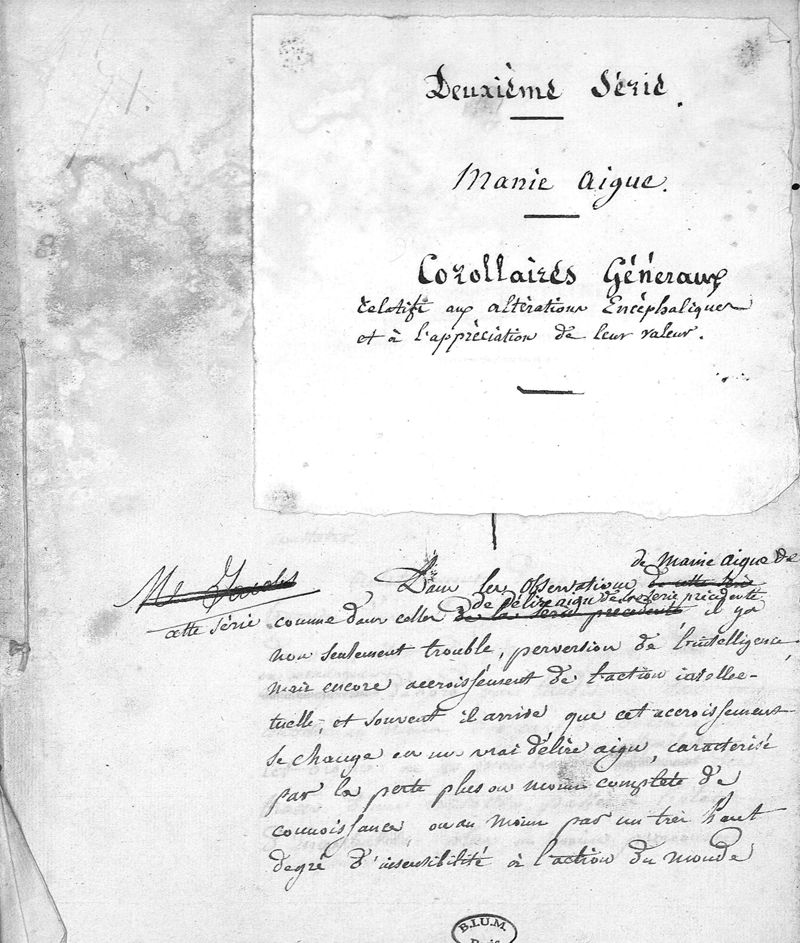 Deuxième Série.
Manie aigue.
Corollaires Généraux
relatifs aux altérations Encéphaliques
et à l'appréciation de leur valeur.
de Manie aigue de
Dans les Observations de cette série
de délire aigu de la série précédente
cette série comme dans celles de la série précédente il y a
non seulement trouble, perversion de l'intelligence,
mais encore accroissement de l'action intellec-
tuelle, et souvent il arrive que cet accroissement
se change en un vrai délire aigu, caractérisé
par la perte plus ou moins complète de
connoissance, ou au moins par un très haut
degré d'insensibilité à l'action du monde
B.I.U.M.
Paris